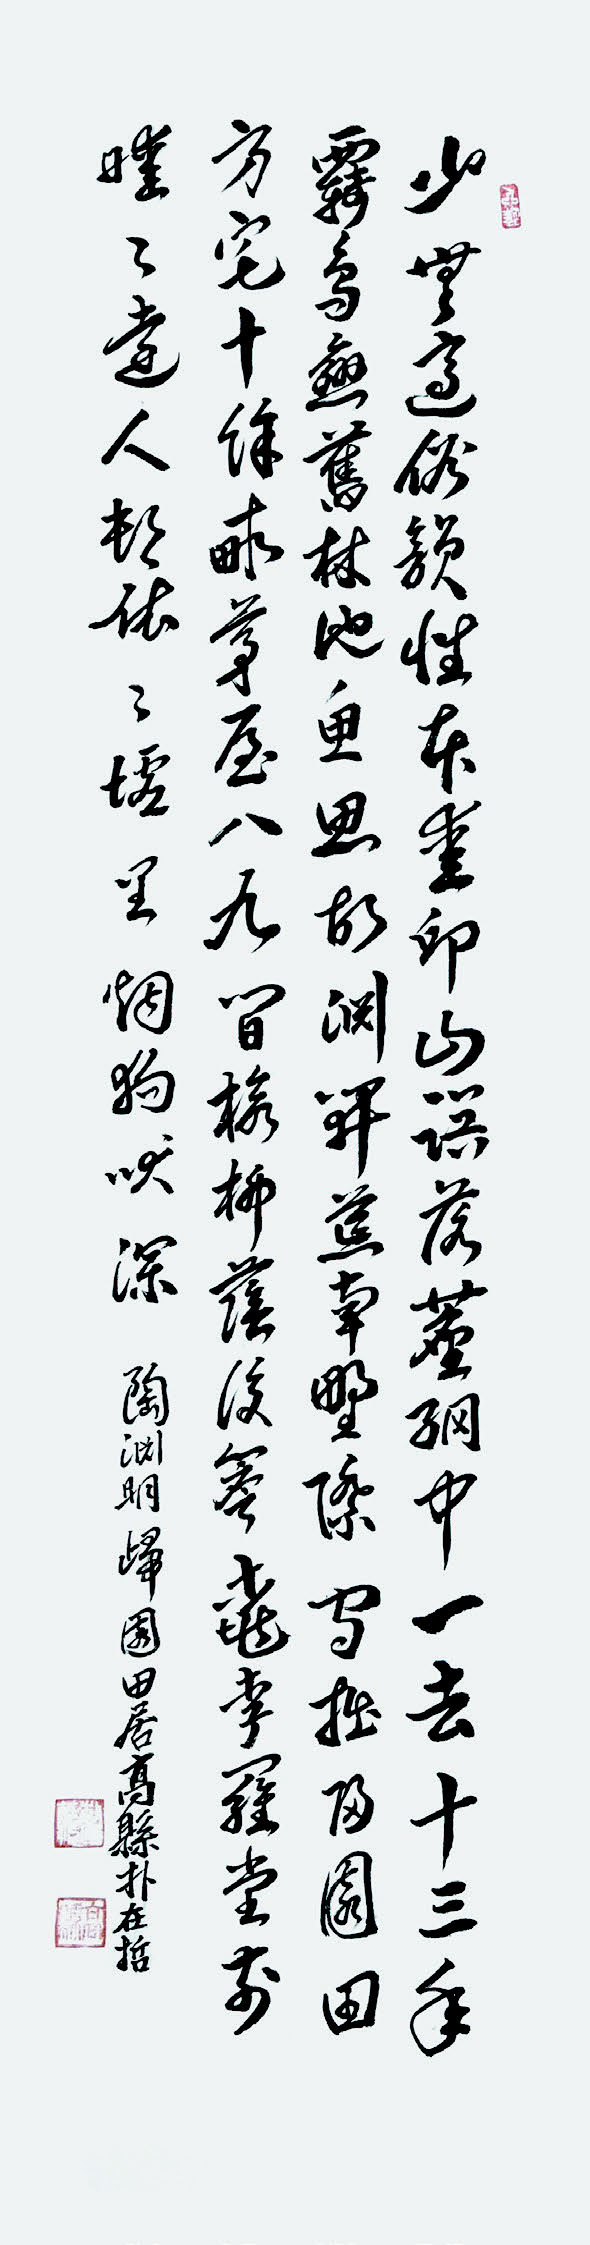 少無適俗韻性本愛邱山誤落塵網中一去十三年
羈鳥戀舊林池魚思故淵開荒南野際守拙歸園田
方宅十餘畝草屋八九間楡柳蔭後簷桃李羅堂前
曖々遠人村依々墟里烟狗吠深 陶淵明歸園田居高縣朴在哲